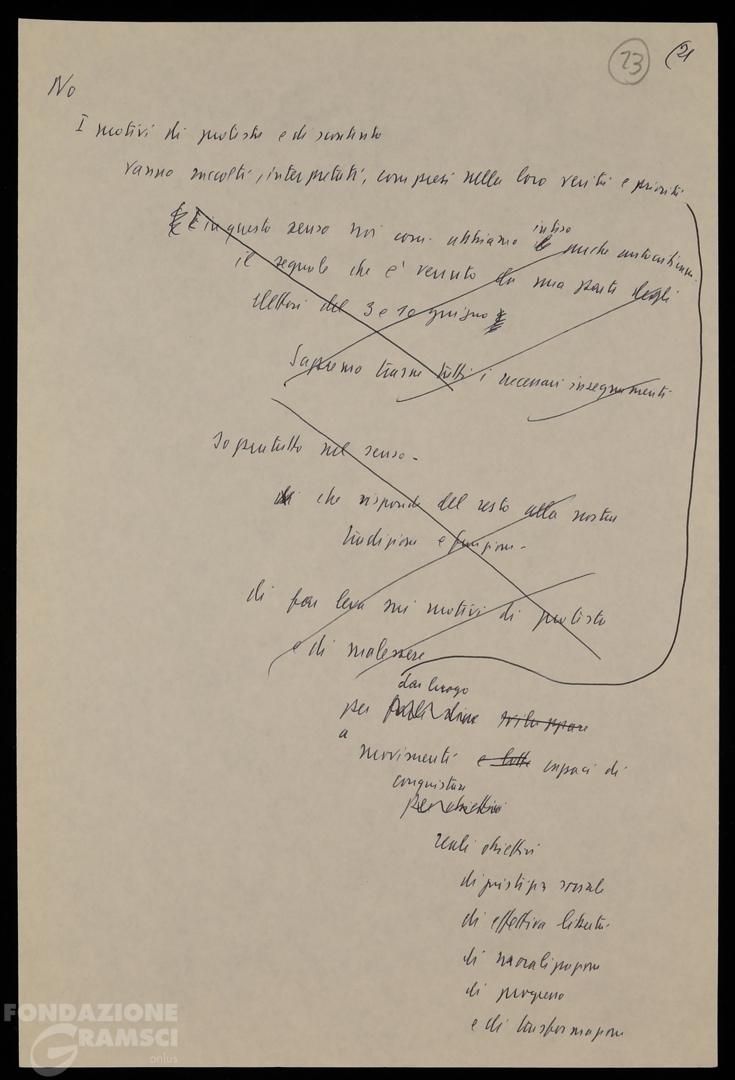 23 (21
No
I motivi di protesta e di scontento
vanno raccolti, interpretati, compresi nella loro verità e priorità
E in questo senso noi com. abbiamo inteso anche
il segnale che è venuto da una parte degli
elettori del 3 e 10 giugno
Sapremo trarne tutti i necessari insegnamenti
Sopratutto nel senso -
che risponde del resto alla nostra
tradizione e funzione -
di far leva sui motivi di protesta
e di malessere
dar luogo
per sviluppare
a
movimenti e lotte capaci di
conquistare
per obiettivi
reali obiettivi
di giustizia sociale
di effettiva libertà
di moralizzazione
di progresso
e di trasformazione
FONDAZIONE
GRAMSCI
onlus